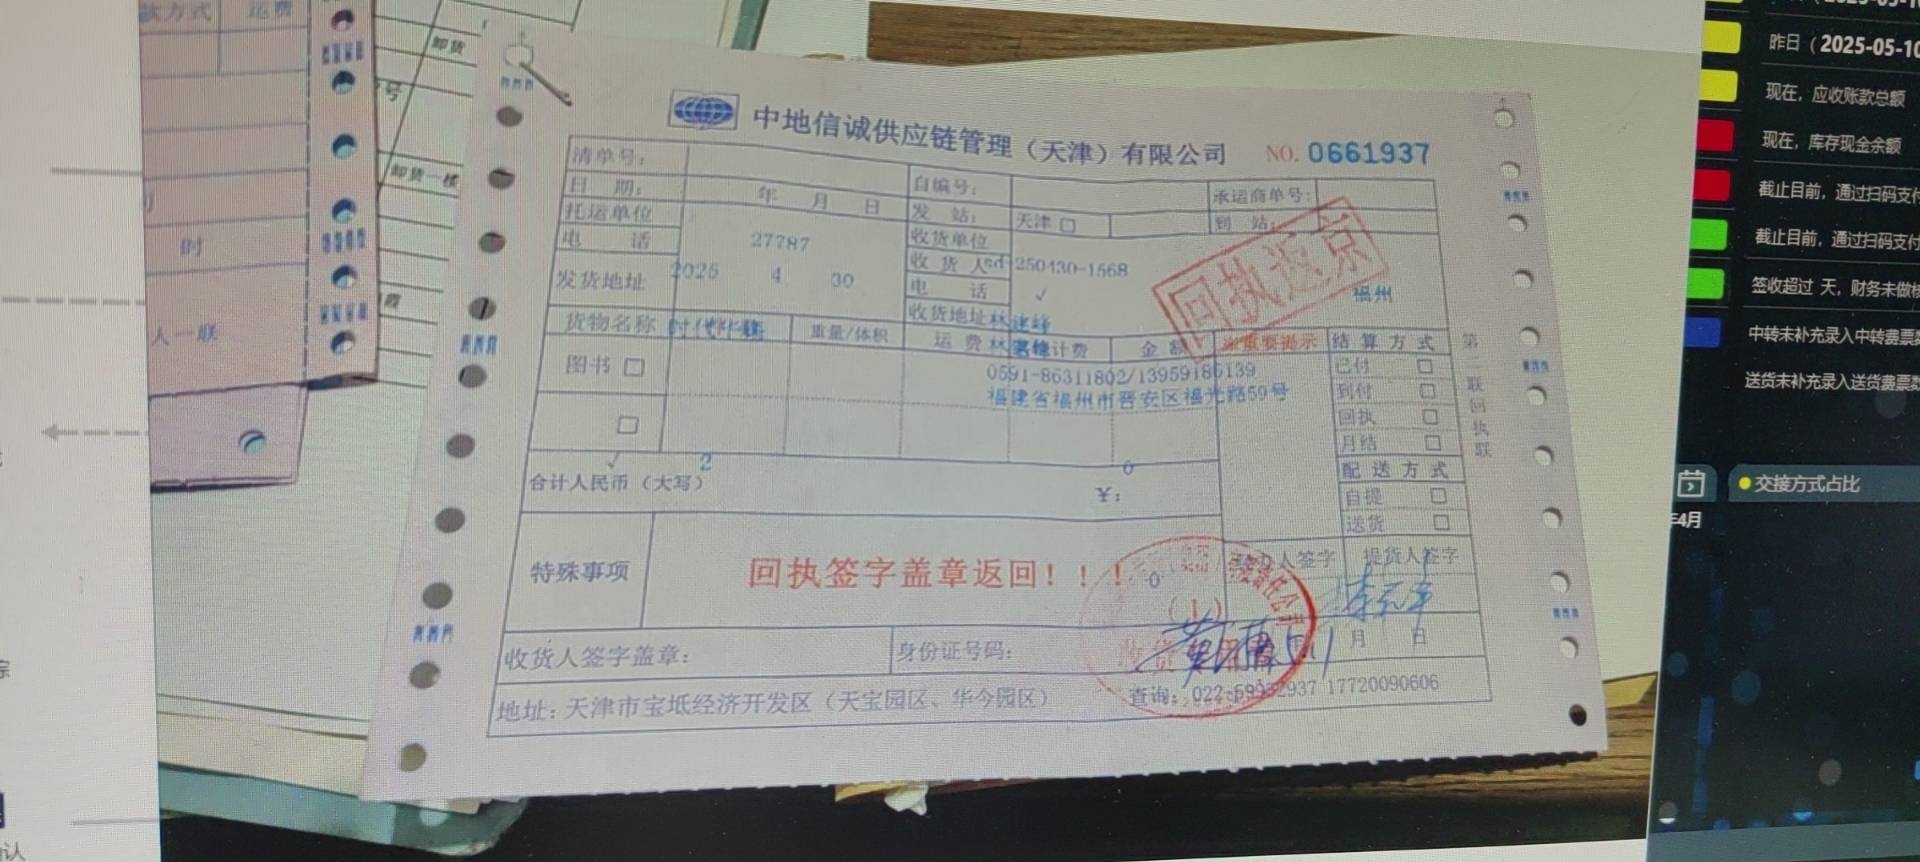 款方式 运费
卸货
号
卸货一楼
时
人一联
中地信诚供应链管理（天津）有限公司 NO. 0661937
清单号： 自编号： 承运商单号：
日 期： 年 月 日 发 站： 天津 □ 到 站：
托运单位 收货单位
电 话 27787 收 货 人 sd-250430-1568
发货地址 2025 4 30 电 话 √ 福州
收货地址 林建峰
回执返京
货物名称 时代华语 重量/体积 运 费 计费 金 额 ※重要提示 结 算 方 式
图书 □ 0591-86311802/13959186139 已付 □
福建省福州市晋安区福光路59号 到付 □
□ 回执 □
月结 □
√ 2 0 配 送 方 式
合计人民币（大写） ￥： 自提 □
送货 □
第二联 回执联
特殊事项 回执签字盖章返回！！！ 0 人签字 提货人签字
（1）
收货人签字盖章： 身份证号码： 月 日
地址：天津市宝坻经济开发区（天宝园区、华今园区） 查询：022-59932937 17720090606
昨日（2025-05-10
现在，应收账款总额
现在，库存现金余额
截止目前，通过扫码支付
截止目前，通过扫码支付
签收超过 天，财务未做核
中转未补充录入中转费票数
送货未补充录入送货费票数
交接方式占比
年4月